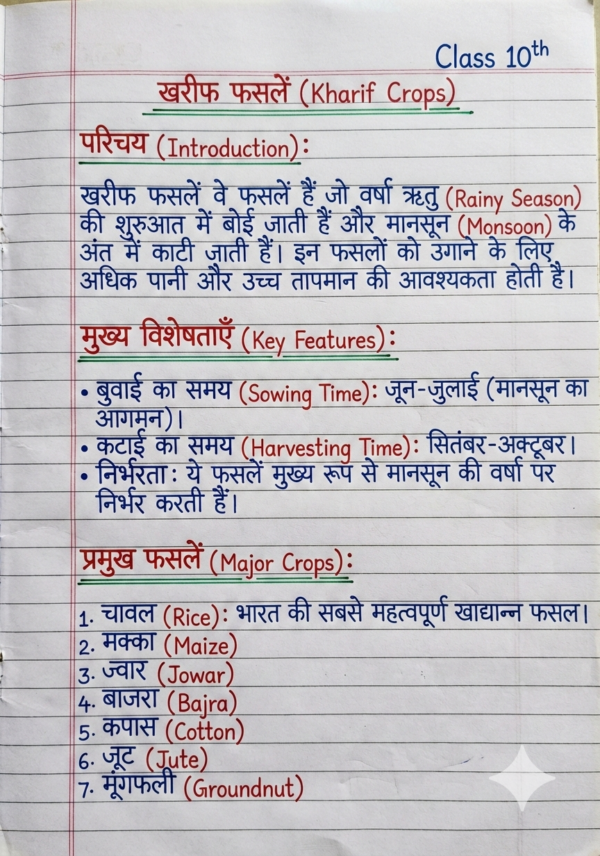 Class 10th
खरीफ फसलें (Kharif Crops)
परिचय (Introduction):
खरीफ फसलें वे फसलें हैं जो वर्षा ऋतु (Rainy Season)
की शुरुआत में बोई जाती हैं और मानसून (Monsoon) के
अंत में काटी जाती हैं। इन फसलों को उगाने के लिए
अधिक पानी और उच्च तापमान की आवश्यकता होती है।
मुख्य विशेषताएँ (Key Features):
• बुवाई का समय (Sowing Time): जून-जुलाई (मानसून का
आगमन)।
• कटाई का समय (Harvesting Time): सितंबर-अक्टूबर।
• निर्भरता: ये फसलें मुख्य रूप से मानसून की वर्षा पर
निर्भर करती हैं।
प्रमुख फसलें (Major Crops):
1. चावल (Rice): भारत की सबसे महत्वपूर्ण खाद्यान्न फसल।
2. मक्का (Maize)
3. ज्वार (Jowar)
4. बाजरा (Bajra)
5. कपास (Cotton)
6. जूट (Jute)
7. मूंगफली (Groundnut)